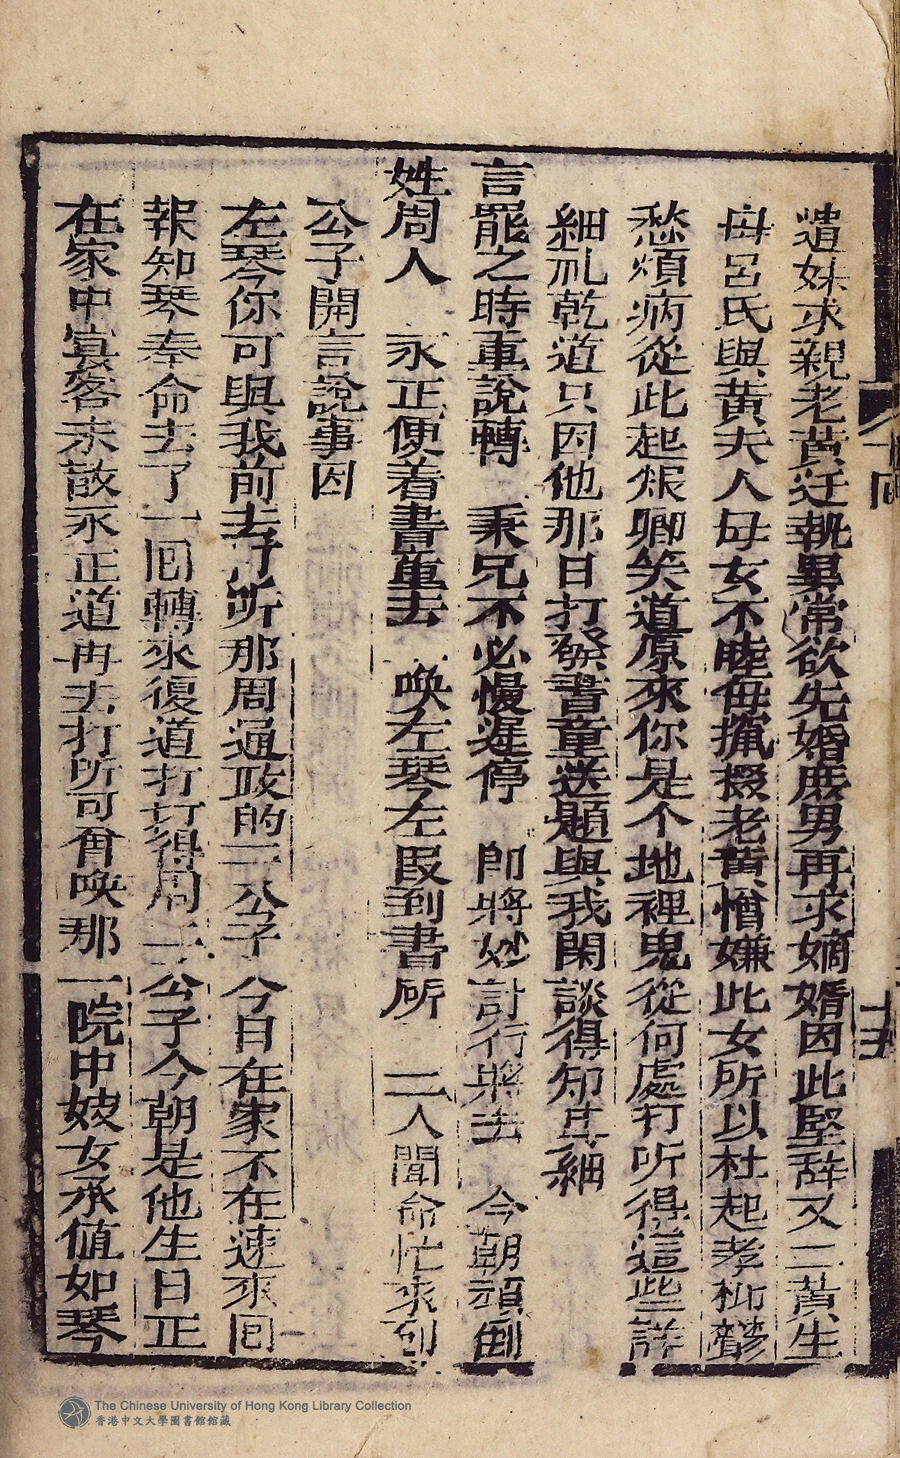 遣妹求親老黃迂執異常欲先婚庶男再求嫡婿因此堅辞又二黃生
母呂氏與黃夫人母女不睦每攛掇老黃憎嫌此女所以杜起孝彬鬱
愁煩病從此起烺卿笑道原來你是个地裡鬼從何處打听得這些詳
細礼乾道只因他那日打發書童送題與我閑談得知其細
言罷之時重說轉 秉兄不必慢遲停 即將妙計行將去 今朝頑倒
姓周人 永正便着書童去 喚左琴左叚到書所 二人聞命忙來到
公子開言說事因
左琴你可與我前去打听那周通政的二公子今日在家不在速來囘
報知琴奉命去了一囘轉來復道打听得周二公子今朝是他生日正
在家中宴客未散永正道再去打听可曾喚那一院中妓女承值如琴
十囘
十五
The Chinese University of Hong Kong Library Collection
香港中文大學圖書館館藏